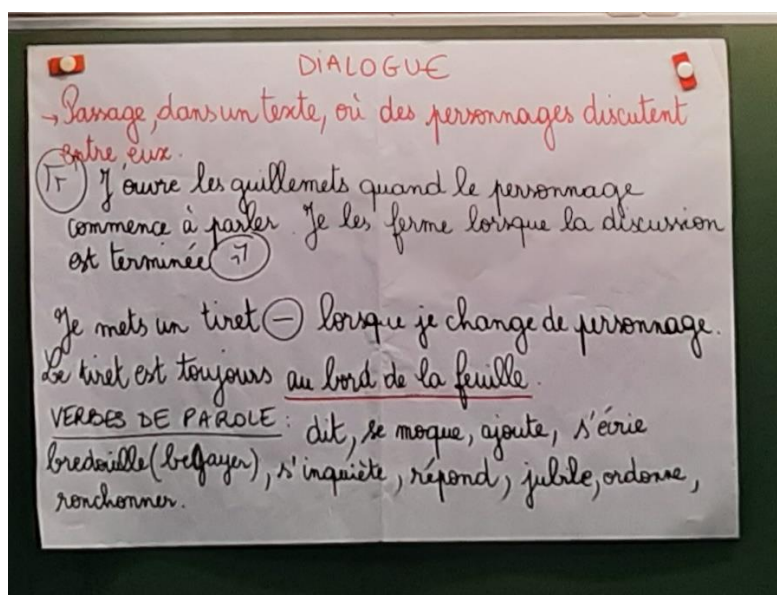 DIALOGUE
→ Passage, dans un texte, où des personnages discutent
entre eux.
« J'ouvre les guillemets quand le personnage
commence à parler. Je les ferme lorsque la discussion
est terminée »
Je mets un tiret – lorsque je change de personnage.
Le tiret est toujours au bord de la feuille.
VERBES DE PAROLE : dit, se moque, ajoute, s'écrie
bredouille (begayer), s'inquiète, répond, jubile, ordonne,
ronchonner.